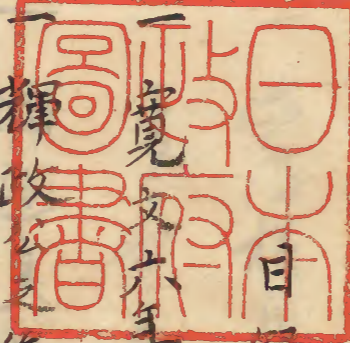 日本
政府
圖書
目
一寛文六年
一輝政公之